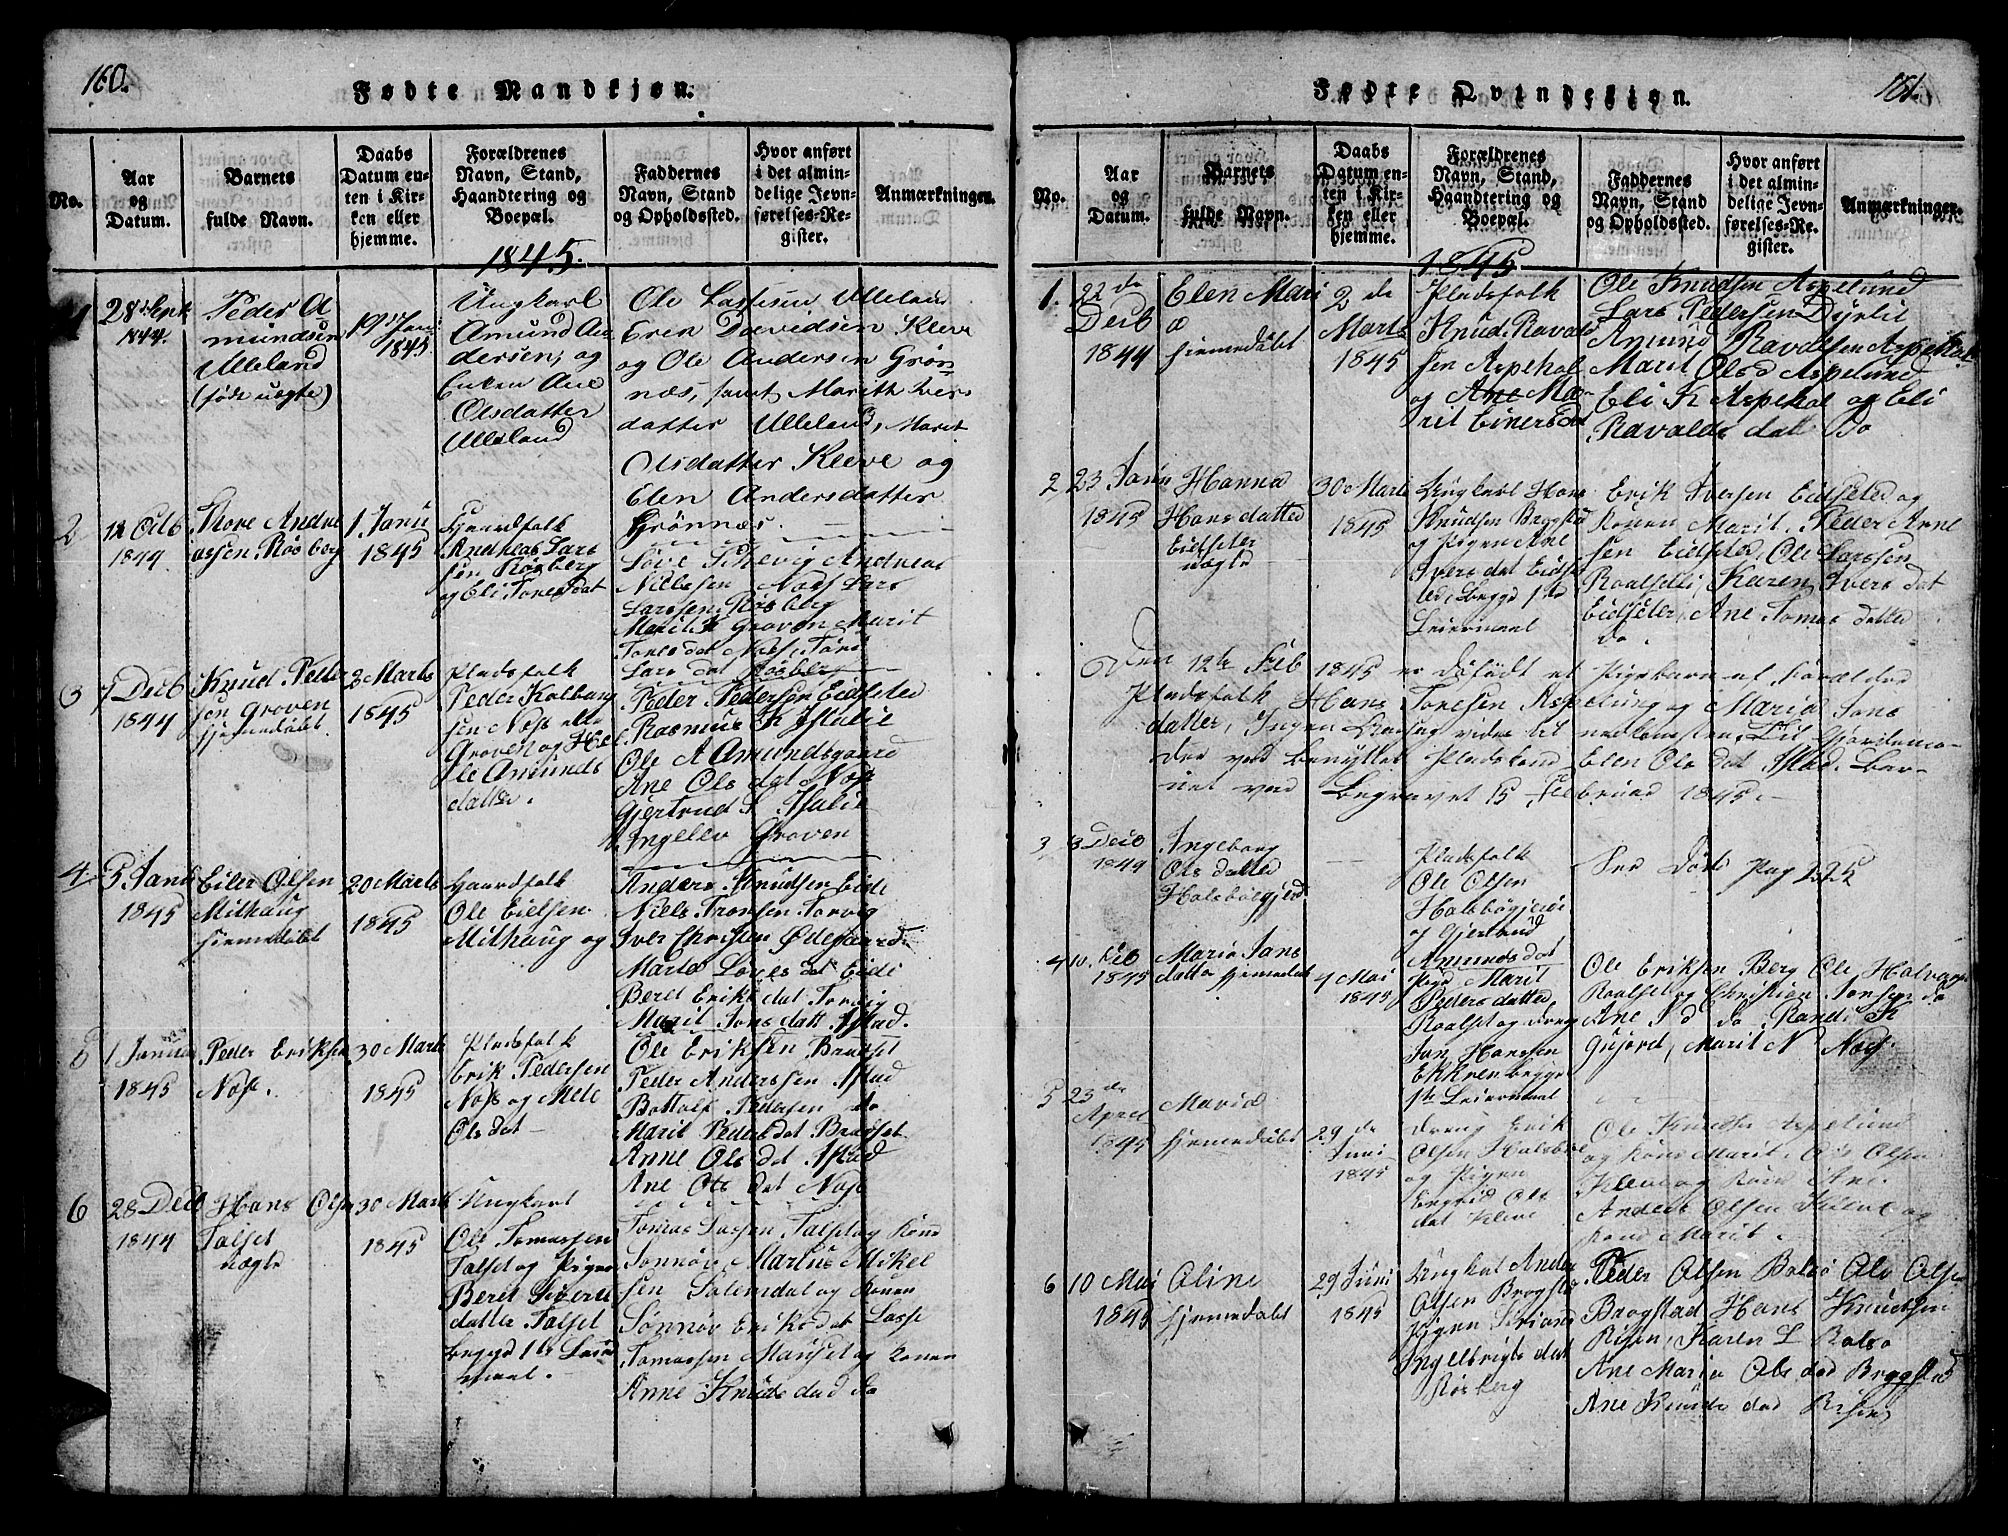 160.
Fødte Mandkjøn.
No.
Aar og Datum.
Barnets fulde Navn.
Daabs Datum enten i Kirken eller hjemme.
Forældrenes Navn, Stand, Haandtering og Boepæl.
Faddernes Navn, Stand og Opholdssted.
Hvor anført i det almindelige Jevnførelses-Register.
Anmærkninger.
1845.
28de Septb
1844.
Peder A
mundsen
Ulleland
(føde uægte)
19de Jan
1845
Ungkarl
Amund An
dersen, og
Enken Ane
Olsdatter
Ulleland
Ole Lassesen Ulleland
Erik Davidsen Kleve
og Ole Andersen Grøn
næs, samt Marith Iver
datter Ulleland, Marit
Olsdatter Kleve og
Elen Andersdatter
Grønnæs.
2
1844
Thore Andre
assen Røsberg
1. Janu
1845
Gaardfolk
Andreas Lars
sen Røsberg
og Eli Toresdat
Andreas
Nielssen Næss Lars
Larssen Røsberg
Marit K Groven Marit
Tores dat Næss
Lars dat Røsberg
3
7 Decb
1844
Knud Peder
sen Groven
hjemedøbt
2 Marts
1845
Pladsfolk
Peder Kolbang
sen Næss eller
Groven og
Amunds
datter.
Peder Pedersen Eidseter
Rasmus K Istalie
Ole A Amundsgaard
Ane Ols dat Næss
Gjertrud S Istalie
Ingeleiv Groven
4
5 Janu
1845
Eiler Olsen
Milhaug
hjemedøbt
20 Marts
1845
Gaardfolk
Ole Eielsen
Milhaug og
Anders Knudsen Eide
Niels Tronsen Torvig
Iver Christen Ødegaard
Marte Loves dat Eide
Beret Eriks dat Torvig
Marit Jons datt Istad.
5
1 Januar
1845
Peder Eriksen
Næss.
30 Marts
1845
Pladsfolk
Erik Pedersen
Næss og Mele
Ols dat
Ole Eriksen Bradset
Peder Anderssen Istad
Bottolf Pedersen do
Marit Peders dat Bradset
Anne Ols dat Istad
Ane Ols dat Næss
6
28 Decb
1844
Hans Olsen
Talset
uægte
30 Marts
1845
Ungkarl
Ole Tomassen
Talset og Pigen
Beret Siverts
datter Talset
begge 1te Leier
maal.
Tomas Lassen Talset og Kond
Sønnøv, Martus Mikel
sen Solemdal og Konen
Sønnøv Eriks dat Lasse
Tomassen Mauset og Konen
Anne Knuds dad do
161.
Fødte Qvindekjøn.
No.
Aar og Datum.
Barnets fulde Navn.
Daabs Datum enten i Kirken eller hjemme.
Forældrenes Navn, Stand, Haandtering og Boepæl.
Faddernes Navn, Stand og Opholdssted.
Hvor anført i det almindelige Jevnførelses-Register.
Anmærkninger.
1845
1.
22 de
Decb
1844
Elen Mari
a
hjemedøbt
2 de
Marts
1845
Pladsfolk
Knud Ravald
sen Aspehol
og Ane Ma
rit Einersdat
Ole Knudsen Aspelund
Lars Pedersen Dyrlie
Amund Ravaldsen Aspehol
Marit Olsd Aspelund
Eli K Aspehol og Eli
Ravalds dat Do
2
23 Janu
1845
Hanna
Hansdatter
Eidseter
uægte
30 Marts
1845
Ungkarl Hans
Knudsen Brogstad
og Pigen Ane
Ivers dat Eidse
ter, begge 1te
Leiermaal
Erik Iversen Eidseter og
Konen Marit, Peder Arne
sen Eidseter, Ole Larssen
Roaldset, Karen Ivers dat
Eidseter, Ane Tomas datter
do.
Den 12te Feb 1845 er dødfødt et Pigebarn af Forældre
Pladsfolk Hans Toresen Aspelung og Maria Jons
datter, Ingen Aarsag vides til nedkomsten. Til Gjordemo-
der ved benyttet Pladskone Elen Ols dat Istad. Bar-
net var Begravet 15 Februar 1845.
3
8 Decb
1844
Ingeborg
Ols datter
Halsbøegjerde
Pladsfolk
Ole Olsen
Halsbøgjerde
og Gjertrud
Amunds dat
See Døde Pag 225
4
10. Feb
1845
Maria Jans
datter hjemedøbt
4 Mai
1845
Pige Marit
Peders datter
Roalset og Dreng
Jan Hanssen
Ekkren begge
1te Leiermaal
Ole Eriksen Berg Ole Halvorsen
Roalset og Christian Jonsen do
Ane N d do, Randi K
Gujord, Marit N Næss.
5
23 de
April
1845
Maria
hjemedøbt
29 de
Juni
1845
Dreng Erik
Olsen Halsbøe
og Pigen
Engrid Ols
dat Kleve
Ole Knudsen Aspelund
og Kone Marit, Ols Olsen
Kleve og Kone Ane
Anders Olsen Kleve og
Kone Marit.
6
10 Mai
1845
Oline
hjemedøbt
29 Juni
1845
Ungkal Ander
Olsen Brogstad
Pigen Siriane
Ingelbrigts dat
Røsberg
Peder Olsen Bolsø Ole Olsen
Brogstad Hans Knudsen
Risen, Karen L Bolsø
Ane Maria Ols dad Brogstad
Ane Knuds dad Risen